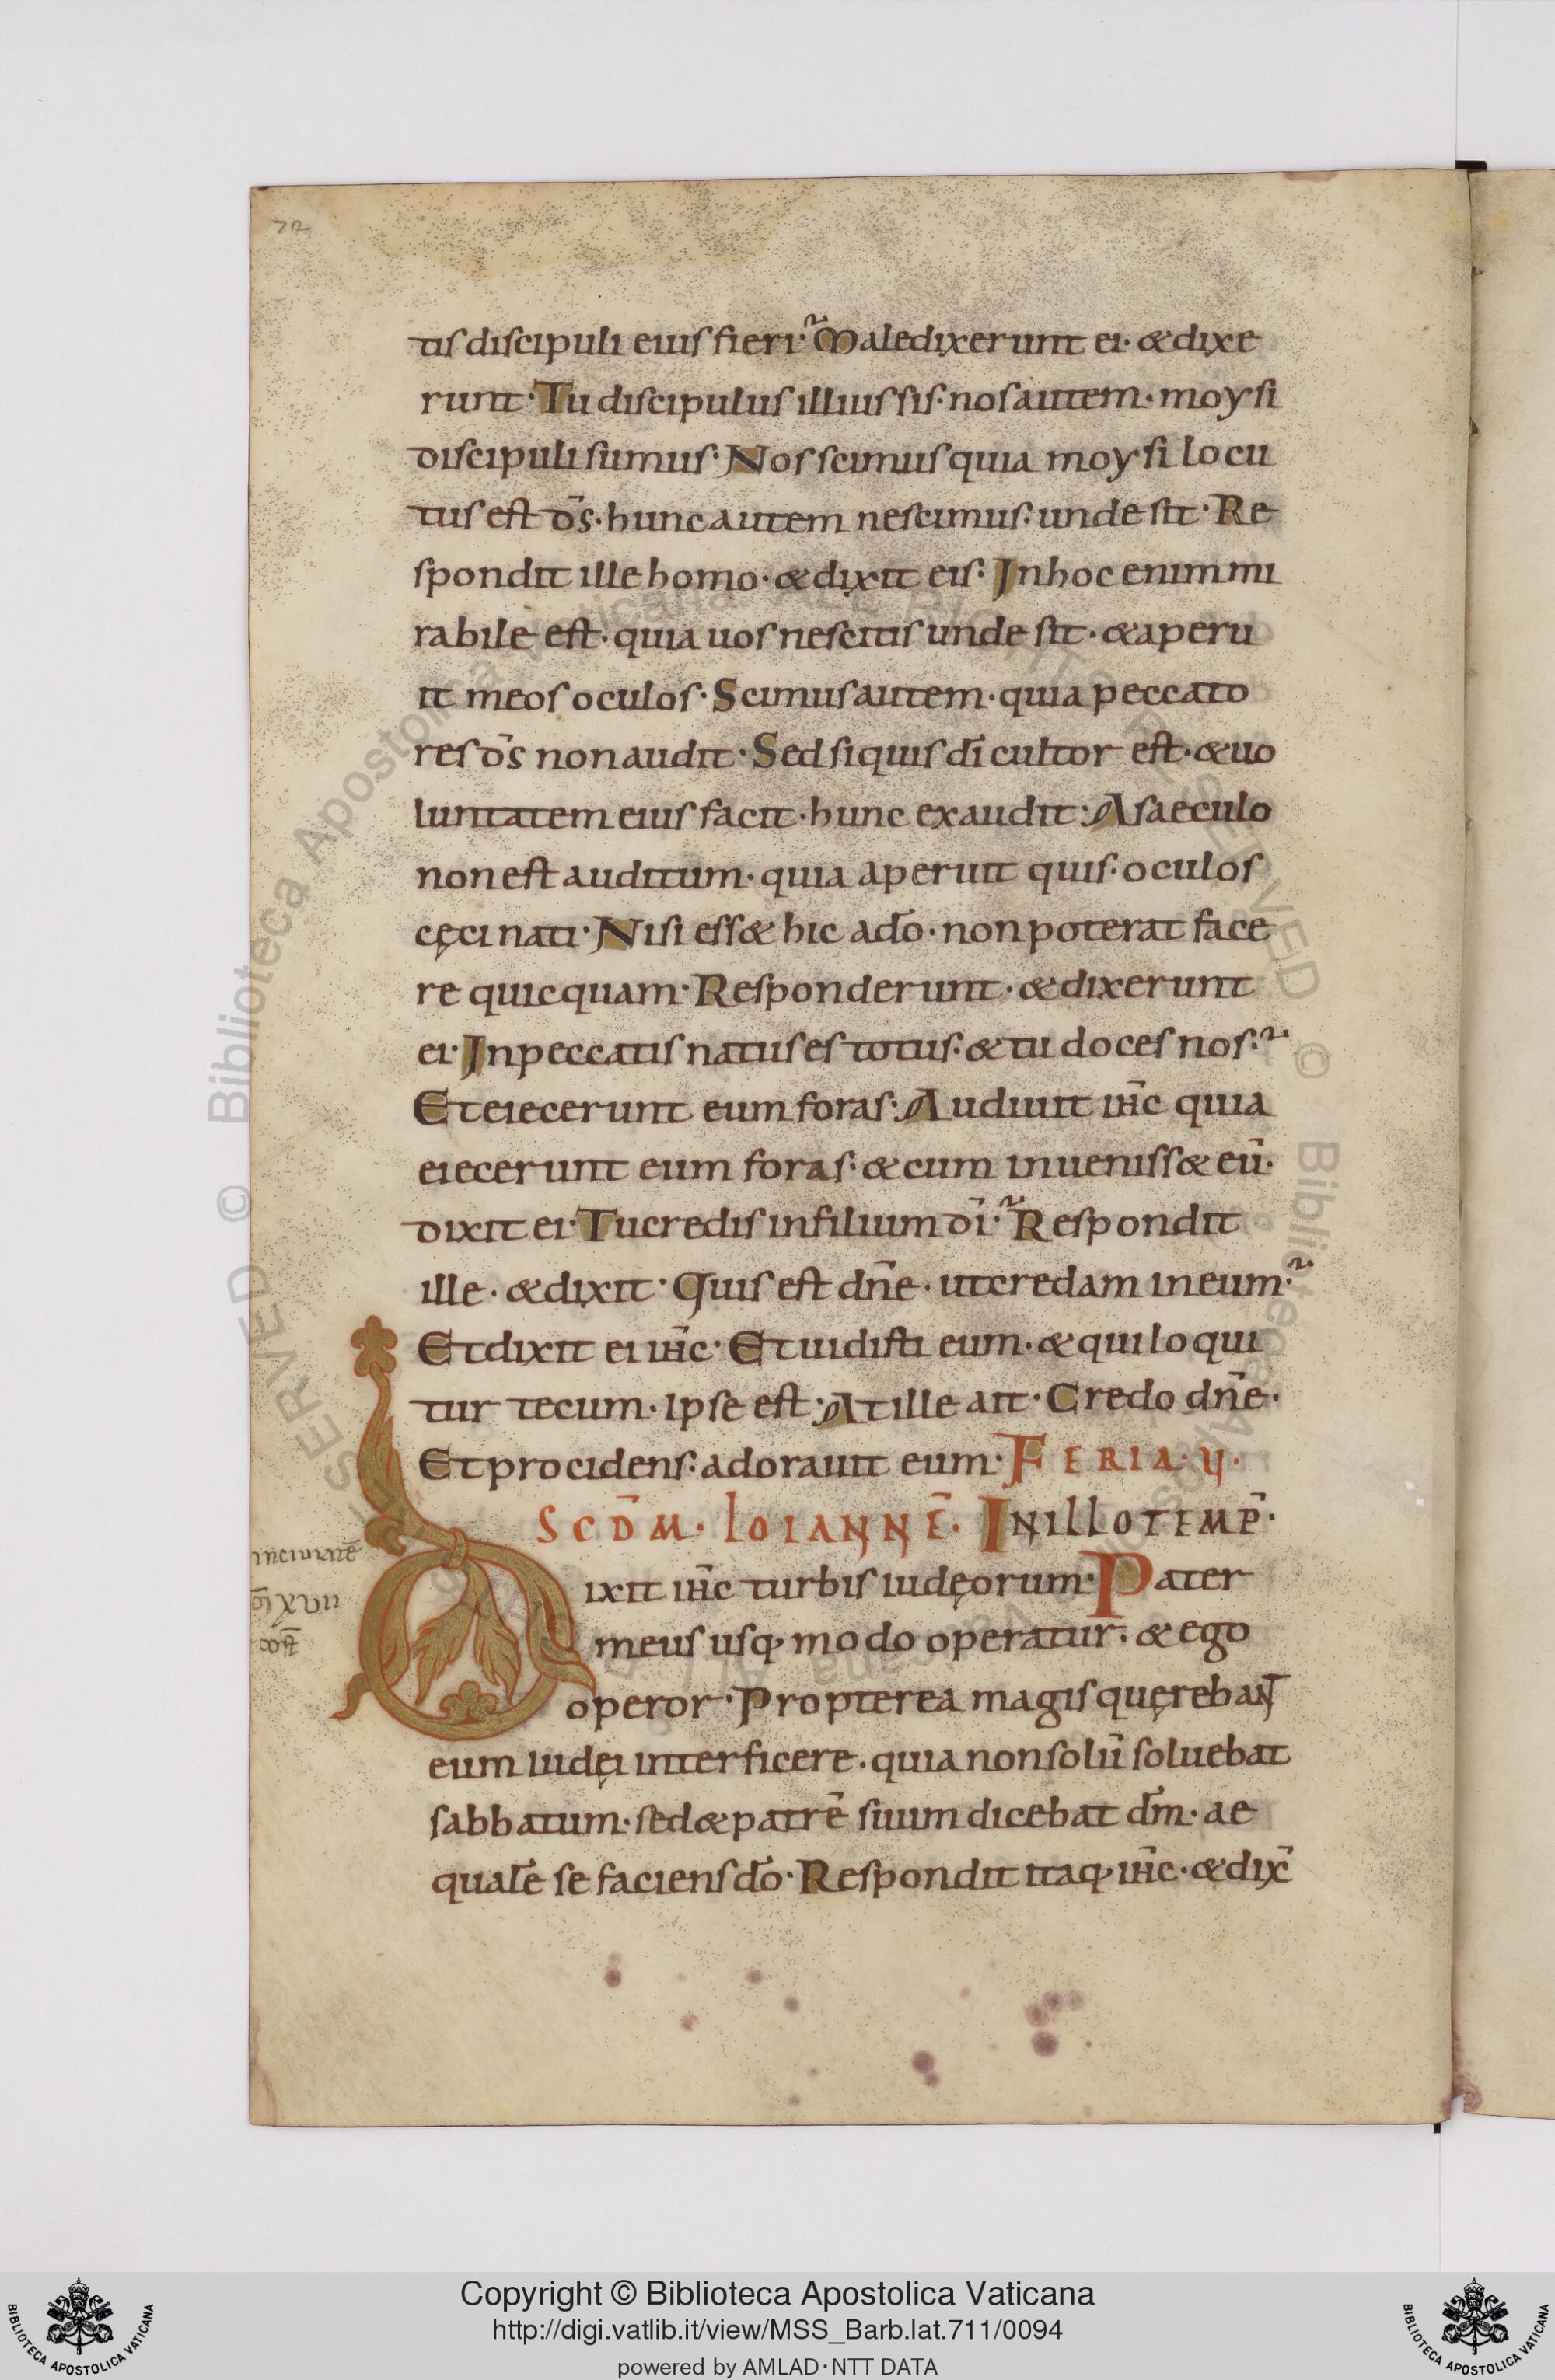 72
tis discipuli eius fieri? Maledixerunt ei· & dixe
runt· Tu discipulus illius sis· nos autem· moysi
discipuli sumus· Nos scimus quia moysi locu
tus est d̄s· hunc autem nescimus· unde sit· Re
spondit ille homo· & dixit eis· In hoc enim mi
rabile est· quia uos nescitis unde sit· & aperu
it meos oculos· Scimus autem· quia peccato
res d̄s non audit· Sed si quis dī cultor est· & uo
luntatem eius facit· hunc exaudit· A saeculo
non est auditum· quia aperuit quis· oculos
cęci nati· Nisi ess& hic a dō· non poterat face
re quicquam· Responderunt· & dixerunt
ei· In peccatis natus es totus· & tu doces nos?
Et eiecerunt eum foras· Audiuit ih̄c quia
eiecerunt eum foras· & cum inueniss& eū·
dixit ei· Tu credis in filium dī? Respondit
ille· & dixit· Quis est dn̄e· ut credam in eum?
Et dixit ei ih̄c· Et uidisti eum· & qui loqui
tur tecum· ipse est· At ille ait· Credo dn̄e·
Et procidens· adorauit eum· FERIA· V·
SCD̄M· IOIANNĒ· IN ILLO TEMP̄·
Dixit ih̄c turbis iudęorum· Pater
meus usq; modo operatur· & ego
operor· Propterea magis quęrebant
eum iudęi interficere· quia non solū soluebat
sabbatum· sed & patrē suum dicebat dm̄· ae
qualē se faciens dō· Respondit itaq; ih̄c· & dix̄
xvii
© Biblioteca Apostolica Vaticana
Copyright © Biblioteca Apostolica Vaticana
http://digi.vatlib.it/view/MSS_Barb.lat.711/0094
powered by AMLAD·NTT DATA
BIBLIOTECA APOSTOLICA VATICANA
BIBLIOTECA APOSTOLICA VATICANA